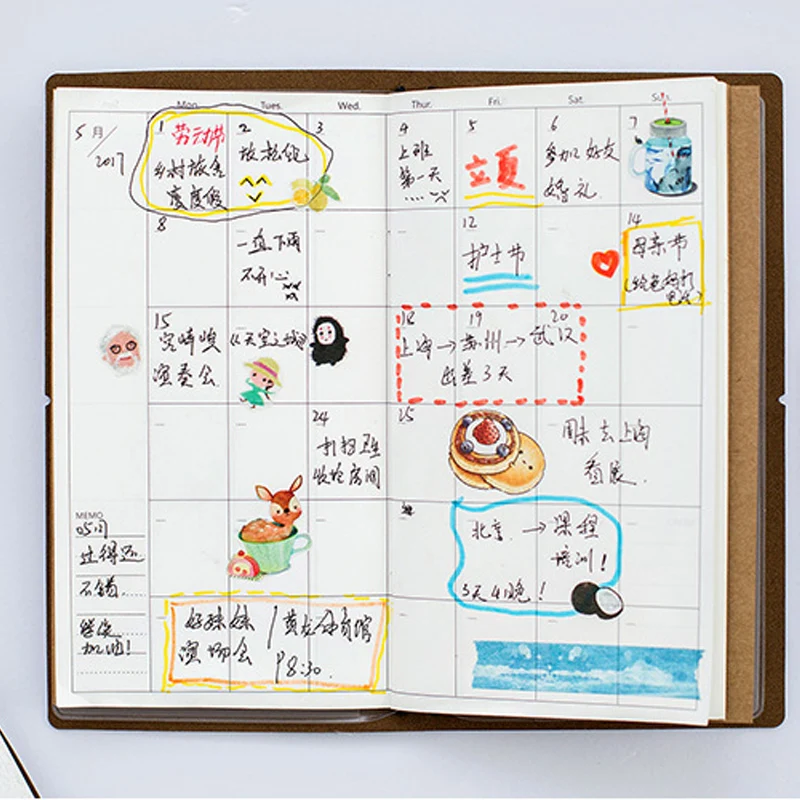 Mon. Tues. Wed. Thur. Fri. Sat. Sun.
5月/
2017
1 劳动节
乡村旅舍
度度假
2
放松假
3
4
上班
第一天
....
5
立夏
6
参加好友
婚礼
7
8
一直下雨
不开心
12
护士节
14
母亲节
(给爸妈打
电话)
15
宫崎峻
演奏会
《天空之城》
18 19 20
上海→苏州→武汉
出差3天
24
打扫卫生
收拾房间
25
周末去上海
看展
MEMO
05月
过得还
不错.
继续
加油!
北京→课程
培训!
5天4晚!
好妹妹/黄龙体育馆
演唱会 P8:30.